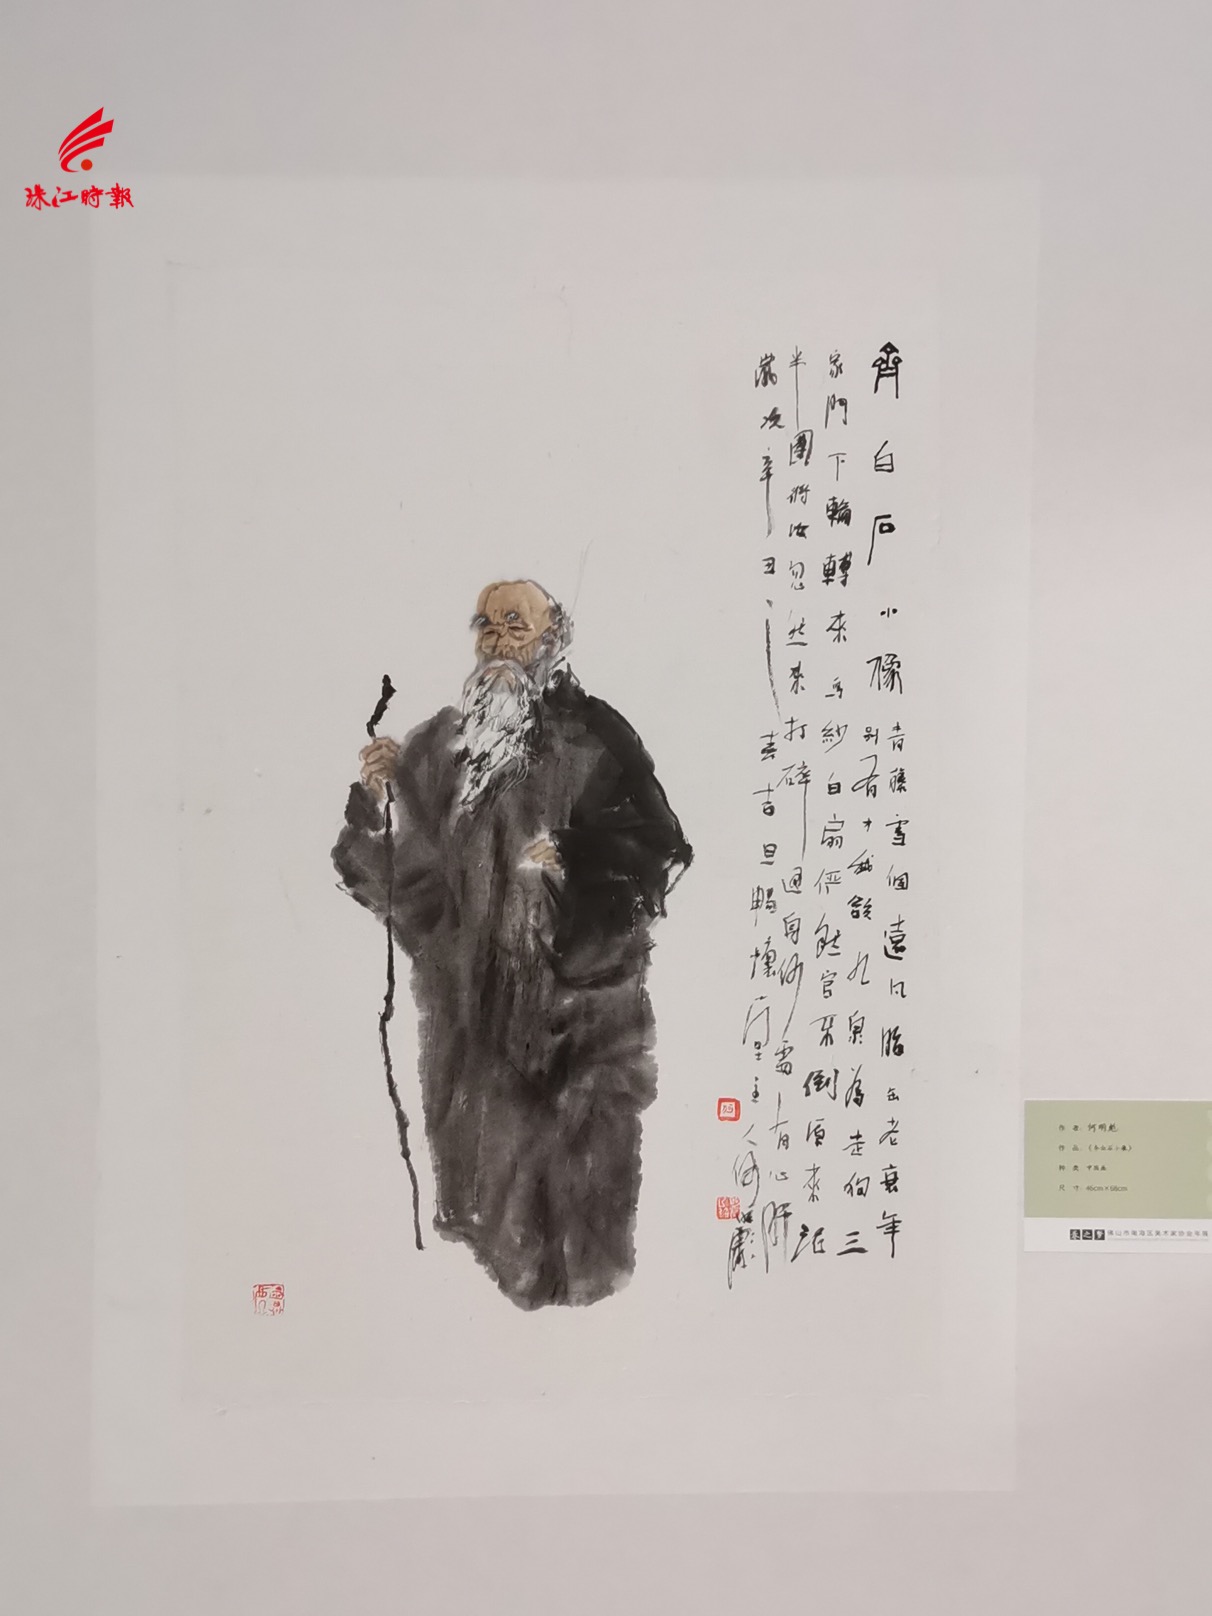 珠江時報
齊白石小像
青藤雪個遠凡胎缶老衰年
別有才我欲九泉為走狗三
家門下輪轉來烏紗白扇儼然官不倒原來泥
半團將汝忽然來打碎通身何處有心肝
歲次辛丑之春吉旦主人何明
作 者：何明魁
作 品：《齐白石小像》
种 类：中国画
尺 寸：46cm×68cm
佛山市南海区美术家协会年展